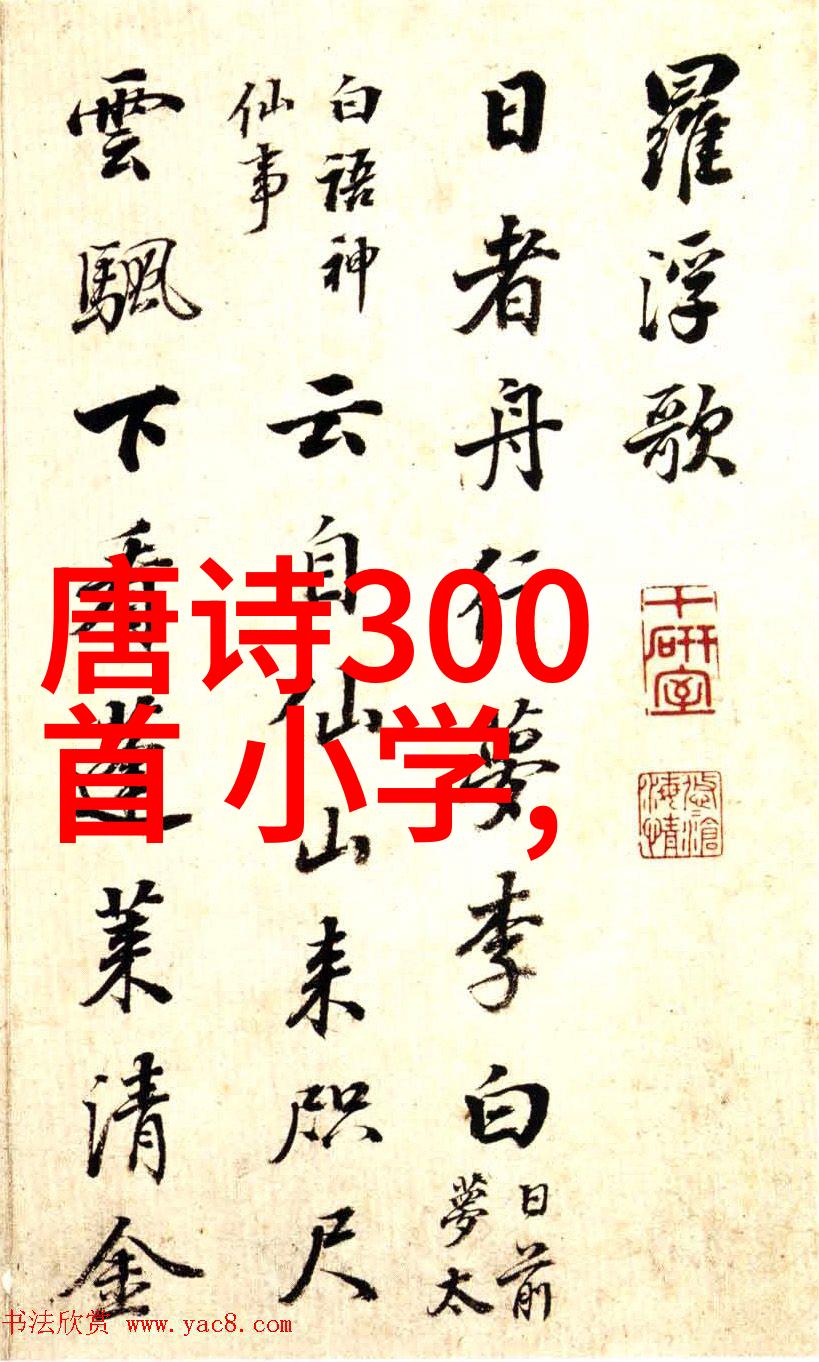 羅浮歌
日者舟行夢李白日前
夢太
白語神
仙事
云自仙山來咫尺
雲颿下看蓬萊清金
唐诗300
首 小学,
千研室
书法欣赏 www.yac8.com